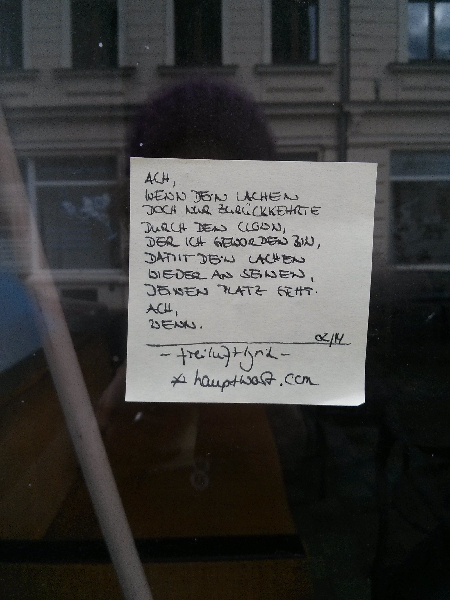 ACH,
WENN DEIN LACHEN
DOCH NUR ZURÜCKKEHRTE
DURCH DEN CLOWN,
DER ICH GEWORDEN BIN,
DAMIT DEIN LACHEN
WIEDER AN SEINEN,
DEINEN PLATZ GEHT.
ACH,
WENN.
02/14
- freiluftlyrik -
* hauptwort.com